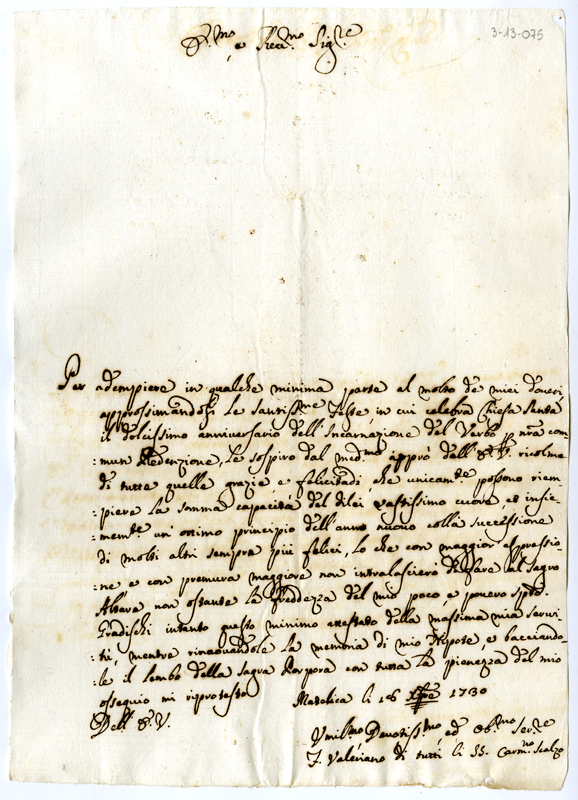 3-13-075
E.mo e Rev.mo Sig.re
Per adempiere in qualche minima parte al molto de miei doveri
approssimandosi le santiss.me Feste, in cui celebra Chiesa Santa
il dolcissimo anniversario dell'Incarnazione del Verbo p nrã com-
:mun Redenzione, Le sospiro dal med.mo appro dell'E.V. ricolme
di tutte quelle grazie e felicitadi, che unicam.te possono riem-
:piere la somma capacità del di lei vastissimo cuore, ed insie-
:mem.te un' ottimo principio dell'anno nuovo colla successione
di molti altri sempre più felici, Lo che con maggior espressio-
:ne e con premura maggiore non intralascierò di fare al Sagro
Altare non ostante La freddezza del mio poco, e povero spto.
Gradischi intanto questo minimo attestato della massima mia servi-
:tù, mentre rinnovandole La memoria di mio Nipote, e bacciando-
:le il Lembo della Sagra Porpora con tutta La pienezza del mio
ossequio mi riprotesto Matelica li 16 Xbre 1730
Dell' E. V.
Vmiliss.mo Devotiss.mo, ed Ob.mo Ser.re
F. Valeriano di tutti li SS. Carm.no Scalzo